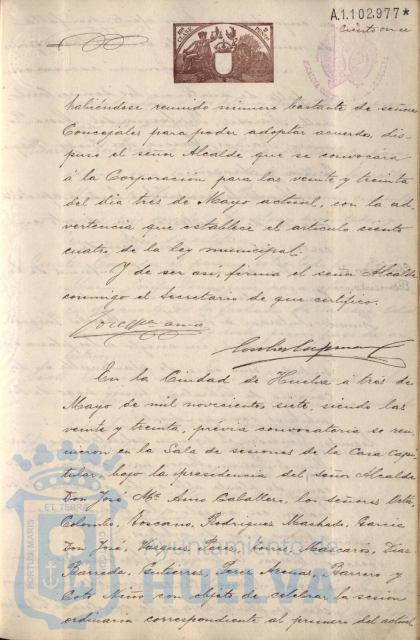 A.1.102.977*
Ciento once
habiéndose reunido número bastante de señores
Concejales para poder adoptar acuerdo, dis-
puso el señor Alcalde que se convocara
á la Corporación para las veinte y treinta
del dia tres de Mayo actual, con la ad-
vertencia que establece el artículo ciento
cuatro de la ley municipal.
Y de ser asi, firma el señor Alcalde
conmigo el Secretario de que certifico.
En la Ciudad de Huelva á tres de
Mayo de mil novecientos siete, siendo las
veinte y treinta, prévia convocatoria se reu-
nieron en la Sala de sesiones de la Casa Capi-
tular, bajo la presidencia del señor Alcalde
Don José Mª Amo Caballero, los señores
Colombo, Toscano, Rodriguez Machado, Garcia
Don José, Vazquez Mascarós, Diaz
Barreda, Gutierrez, Arenas, Barrero y
Coto Niño con objeto de celebrar la sesion
ordinaria correspondiente al primero del actual
PORTUS MARIS
ET TERRAE
Ayuntamiento de
HUELVA